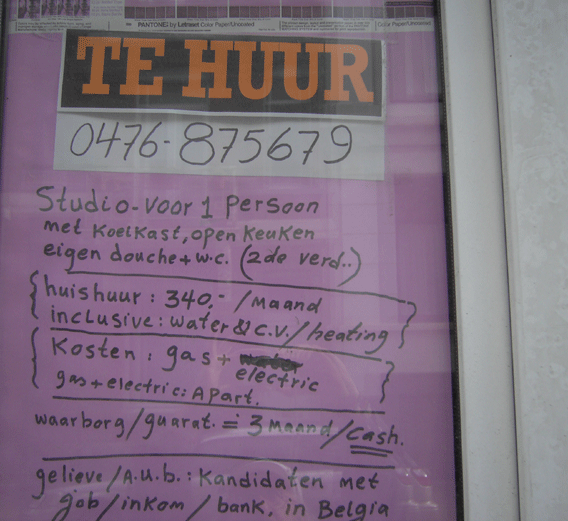 PANTONE by Letraset Color Paper/Uncoated
Color Paper/Uncoated
TE HUUR
0476-875679
Studio-voor 1 persoon
met koelkast, open keuken
eigen douche + w.c. (2de verd..)
huishuur : 340,- / Maand
inclusive : water & c.v. / heating
Kosten : gas + electric
gas + electric : Apart.
waarborg / guarat. = 3 Maand / Cash.
gelieve / A.u.b. : Kandidaten met
job / inkom / bank, in Belgia